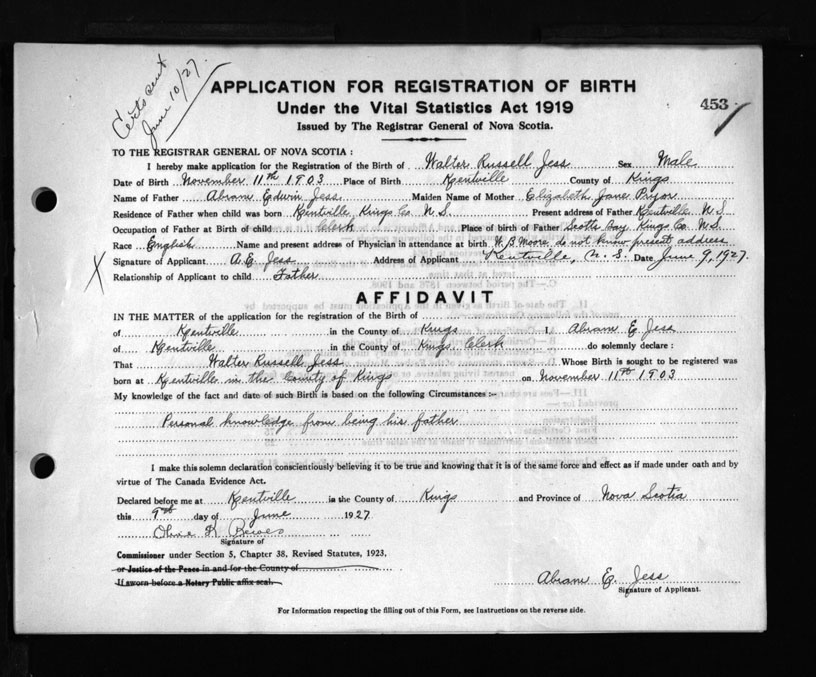 Certs sent
June 10/27.
APPLICATION FOR REGISTRATION OF BIRTH
Under the Vital Statistics Act 1919
453
Issued by The Registrar General of Nova Scotia.
TO THE REGISTRAR GENERAL OF NOVA SCOTIA :
I hereby make application for the Registration of the Birth of Walter Russell Jess Sex Male
Date of Birth November 11th 1903 Place of Birth Kentville County of Kings
Name of Father Abram Edwin Jess Maiden Name of Mother Elizabeth Jane Pryor
Residence of Father when child was born Kentville Kings Co. N.S. Present address of Father Kentville N.S
Occupation of Father at Birth of child Clerk Place of birth of Father Scotts Bay Kings Co. N.S.
Race English Name and present address of Physician in attendance at birth W. B. Moore do not know present address
Signature of Applicant A. E. Jess Address of Applicant Kentville, N. S. Date June 9, 1927.
X Relationship of Applicant to child Father
AFFIDAVIT
IN THE MATTER of the application for the registration of Birth of
of Kentville in the County of Kings I, Abram E Jess
of Kentville in the County of Kings Clerk do solemnly declare :
That Walter Russell Jess Whose Birth is sought to be registered was
born at Kentville in the County of Kings on November 11th 1903
My knowledge of the fact and date of such Birth is based on the following Circumstances :-
Personal knowledge from being his father
I make this solemn declaration conscientiously believing it to be true and knowing that it is of the same force and effect as if made under oath and by
virtue of The Canada Evidence Act.
Declared before me at Kentville in the County of Kings and Province of Nova Scotia
this 9th day of June 1927
Signature of
Commissioner under Section 5, Chapter 38, Revised Statutes, 1923.
or Justice of the Peace in and for the County of
If sworn before a Notary Public affix seal.
Abram E. Jess
Signature of Applicant.
For Information respecting the filling out of this Form, see Instructions on the reverse side.